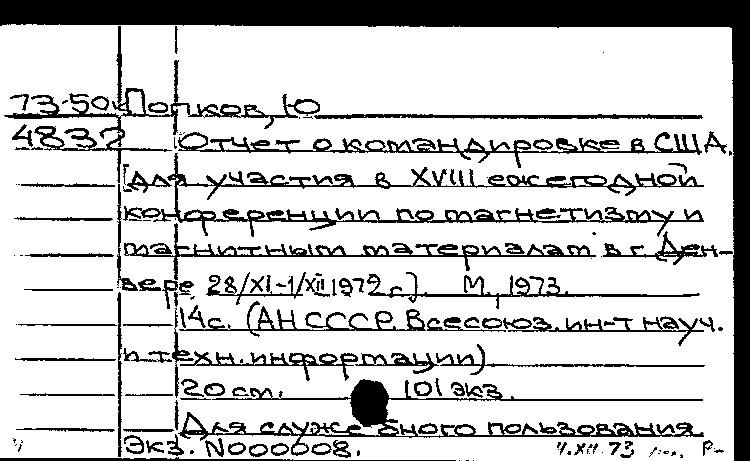 73-50к Попков, Ю
4832 Отчет о командировке в США.
[Для участия в XVIII ежегодной
конференции по магнетизму и
магнитным материалам в г. Ден-
вере 28/XI-1/XII 1972 г.]. М., 1973.
14с. (АН СССР. Всесоюз. ин-т науч.
и техн. информации)
20 см. 101 экз.
Для служебного пользования
Экз. N000008. 4.XII.73